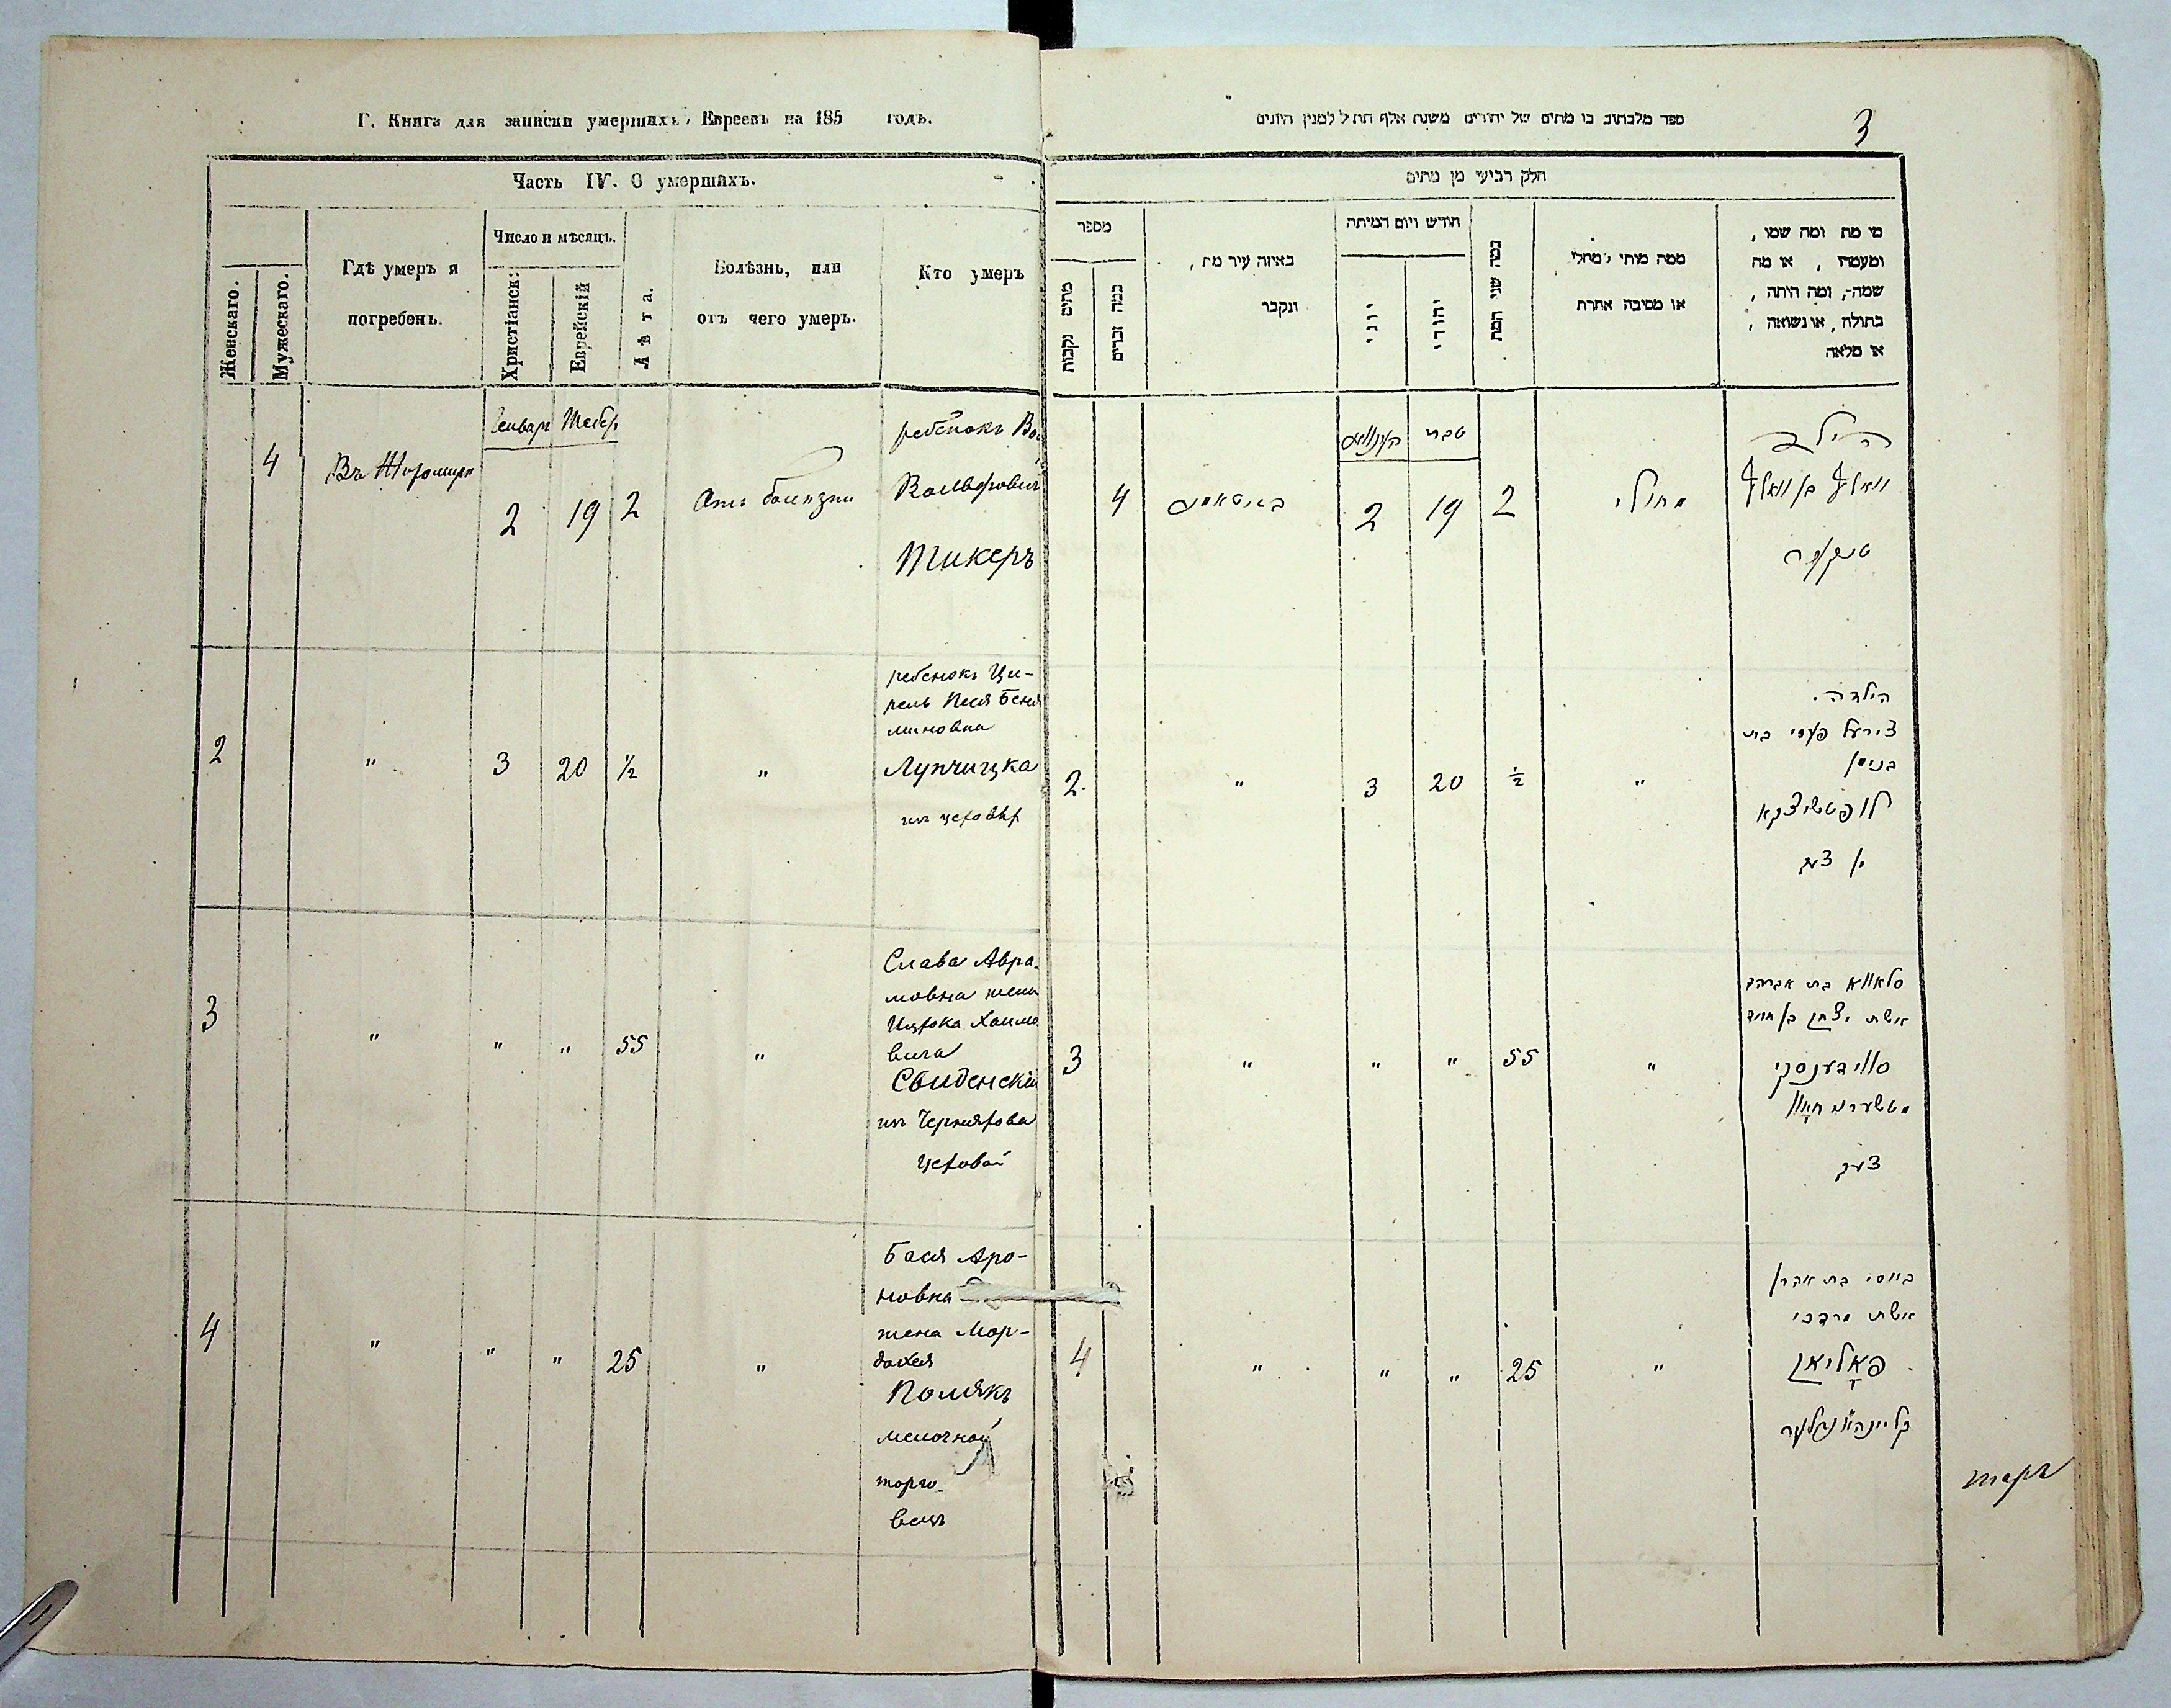 Г. Книга для записки умершихъ Евреевъ на 185 годъ.
Часть IV. О умершихъ.
Женскаго.
Мужескаго.
Гдѣ умеръ и
погребенъ.
Число и мѣсяцъ.
Христіанск:
Еврейскій
Лѣта.
Болѣзнь, или
отъ чего умеръ.
Кто умеръ
4
Въ Житомирѣ
Генвар Тебеф
2 19 2
Отъ болѣзни
ребенокъ
Вольфовичъ
Тикеръ
2 " 3 20 ½ "
ребенокъ Ци-
рель Песя Беня
миновна
Лупчицка
3 " " " 55 "
Слава Авра-
мовна жена
Ицхока Хаимо
вича
Свиденскій
изъ Черняхова
Цеховой
4 " " " 25 "
Бася Аро-
новна
жена Мор-
дохея
Полякъ
мелочной
торго-
вецъ
ספר מלכתוב בו מתים של יהודים משנת אלף תת ל למנין היונים
3
חלק רביעי מן מתים
מספר
מתים נקבות
כמה זכרים
באיזה עיר מת,
ונקבר
חודש ויום המיתה
יוני
יהודי
כמה שני המת
ממה מותי, מחלי
או מסיבה אחרת
מי מת ומה שמו,
ומעמדו, או מה
שמה, ומה היתה,
בתולה, או נשואה,
או מלאה
טבת
4
2 19 2
מחולי
הילד
וואלף בן וואלף
2. " 3 20 ½ "
הילדה.
צירעל פעסי בת
לופטשיצקא
3 " " " 55 "
סלאווא בת אברהם
אשת יצחק בן חיים
סווידענסקי
צעך
4 " " " 25 "
באסי בת אהרן
אשת מרדכי
פאליאק
קליינהענדלער